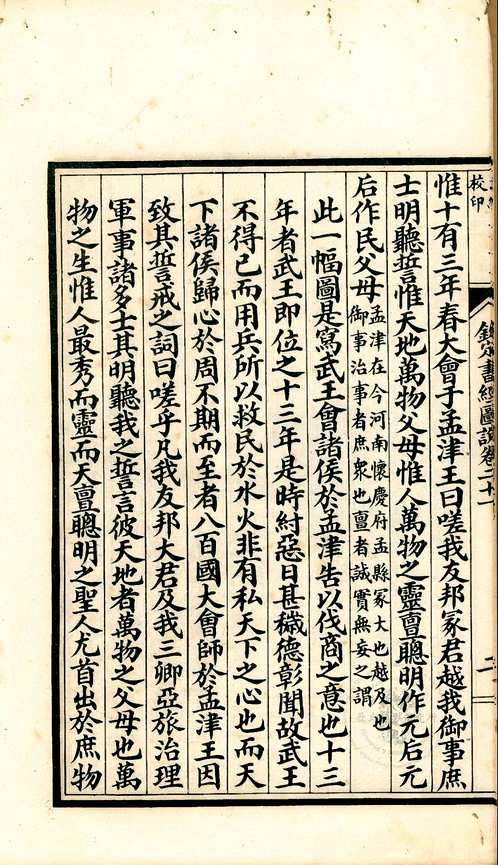 校印
欽定書經圖說卷二十一
二
惟十有三年春大會于孟津王曰嗟我友邦冢君越我御事庶
士明聽誓惟天地萬物父母惟人萬物之靈亶聰明作元后元
后作民父母
孟津在今河南懷慶府孟縣冢大也越及也
御事治事者庶衆也亶者誠實無妄之謂
此一幅圖是寫武王會諸侯於孟津告以伐商之意也十三
年者武王即位之十三年是時紂惡日甚穢德彰聞故武王
不得已而用兵所以救民於水火非有私天下之心也而天
下諸侯歸心於周不期而至者八百國大會師於孟津王因
致其誓戒之詞曰嗟乎凡我友邦大君及我三卿亞旅治理
軍事諸多士其明聽我之誓言彼天地者萬物之父母也萬
物之生惟人最秀而靈而天亶聰明之聖人尤首出於庶物